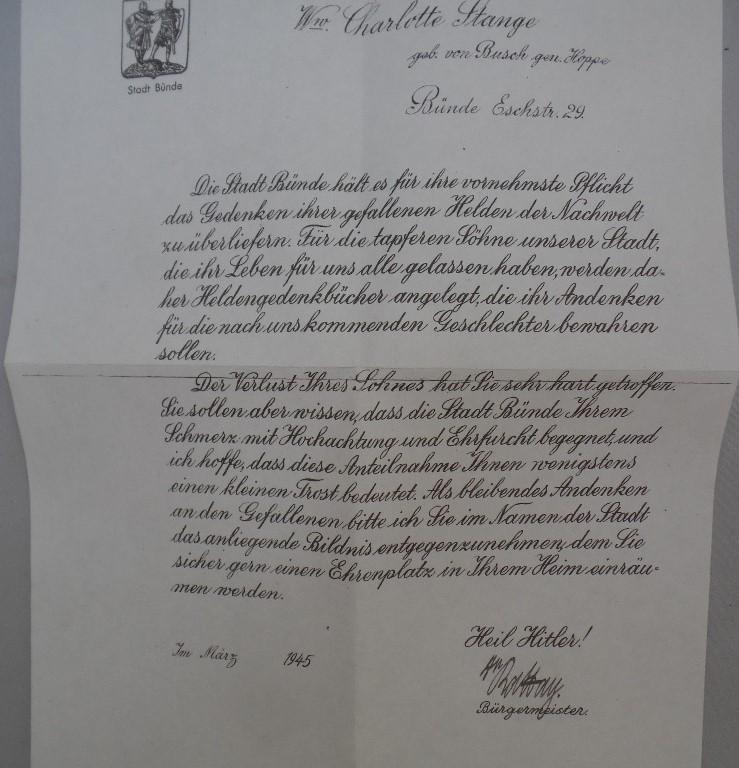 Stadt Bünde
Ww. Charlotte Stange
geb. von Busch gen. Hoppe
Bünde Eschstr. 29.
Die Stadt Bünde hält es für ihre vornehmste Pflicht
das Gedenken ihrer gefallenen Helden der Nachwelt
zu überliefern. Für die tapferen Söhne unserer Stadt,
die ihr Leben für uns alle gelassen haben, werden da-
her Heldengedenkbücher angelegt, die ihr Andenken
für die nach uns kommenden Geschlechter bewahren
sollen.
Der Verlust Ihres Sohnes hat Sie sehr hart getroffen.
Sie sollen aber wissen, dass die Stadt Bünde Ihrem
Schmerz mit Hochachtung und Ehrfurcht begegnet, und
ich hoffe, dass diese Anteilnahme Ihnen wenigstens
einen kleinen Trost bedeutet. Als bleibendes Andenken
an den Gefallenen bitte ich Sie im Namen der Stadt
das anliegende Bildnis entgegenzunehmen, dem Sie
sicher gern einen Ehrenplatz in Ihrem Heim einräu-
men werden.
Heil Hitler!
Im März 1945
Bürgermeister.